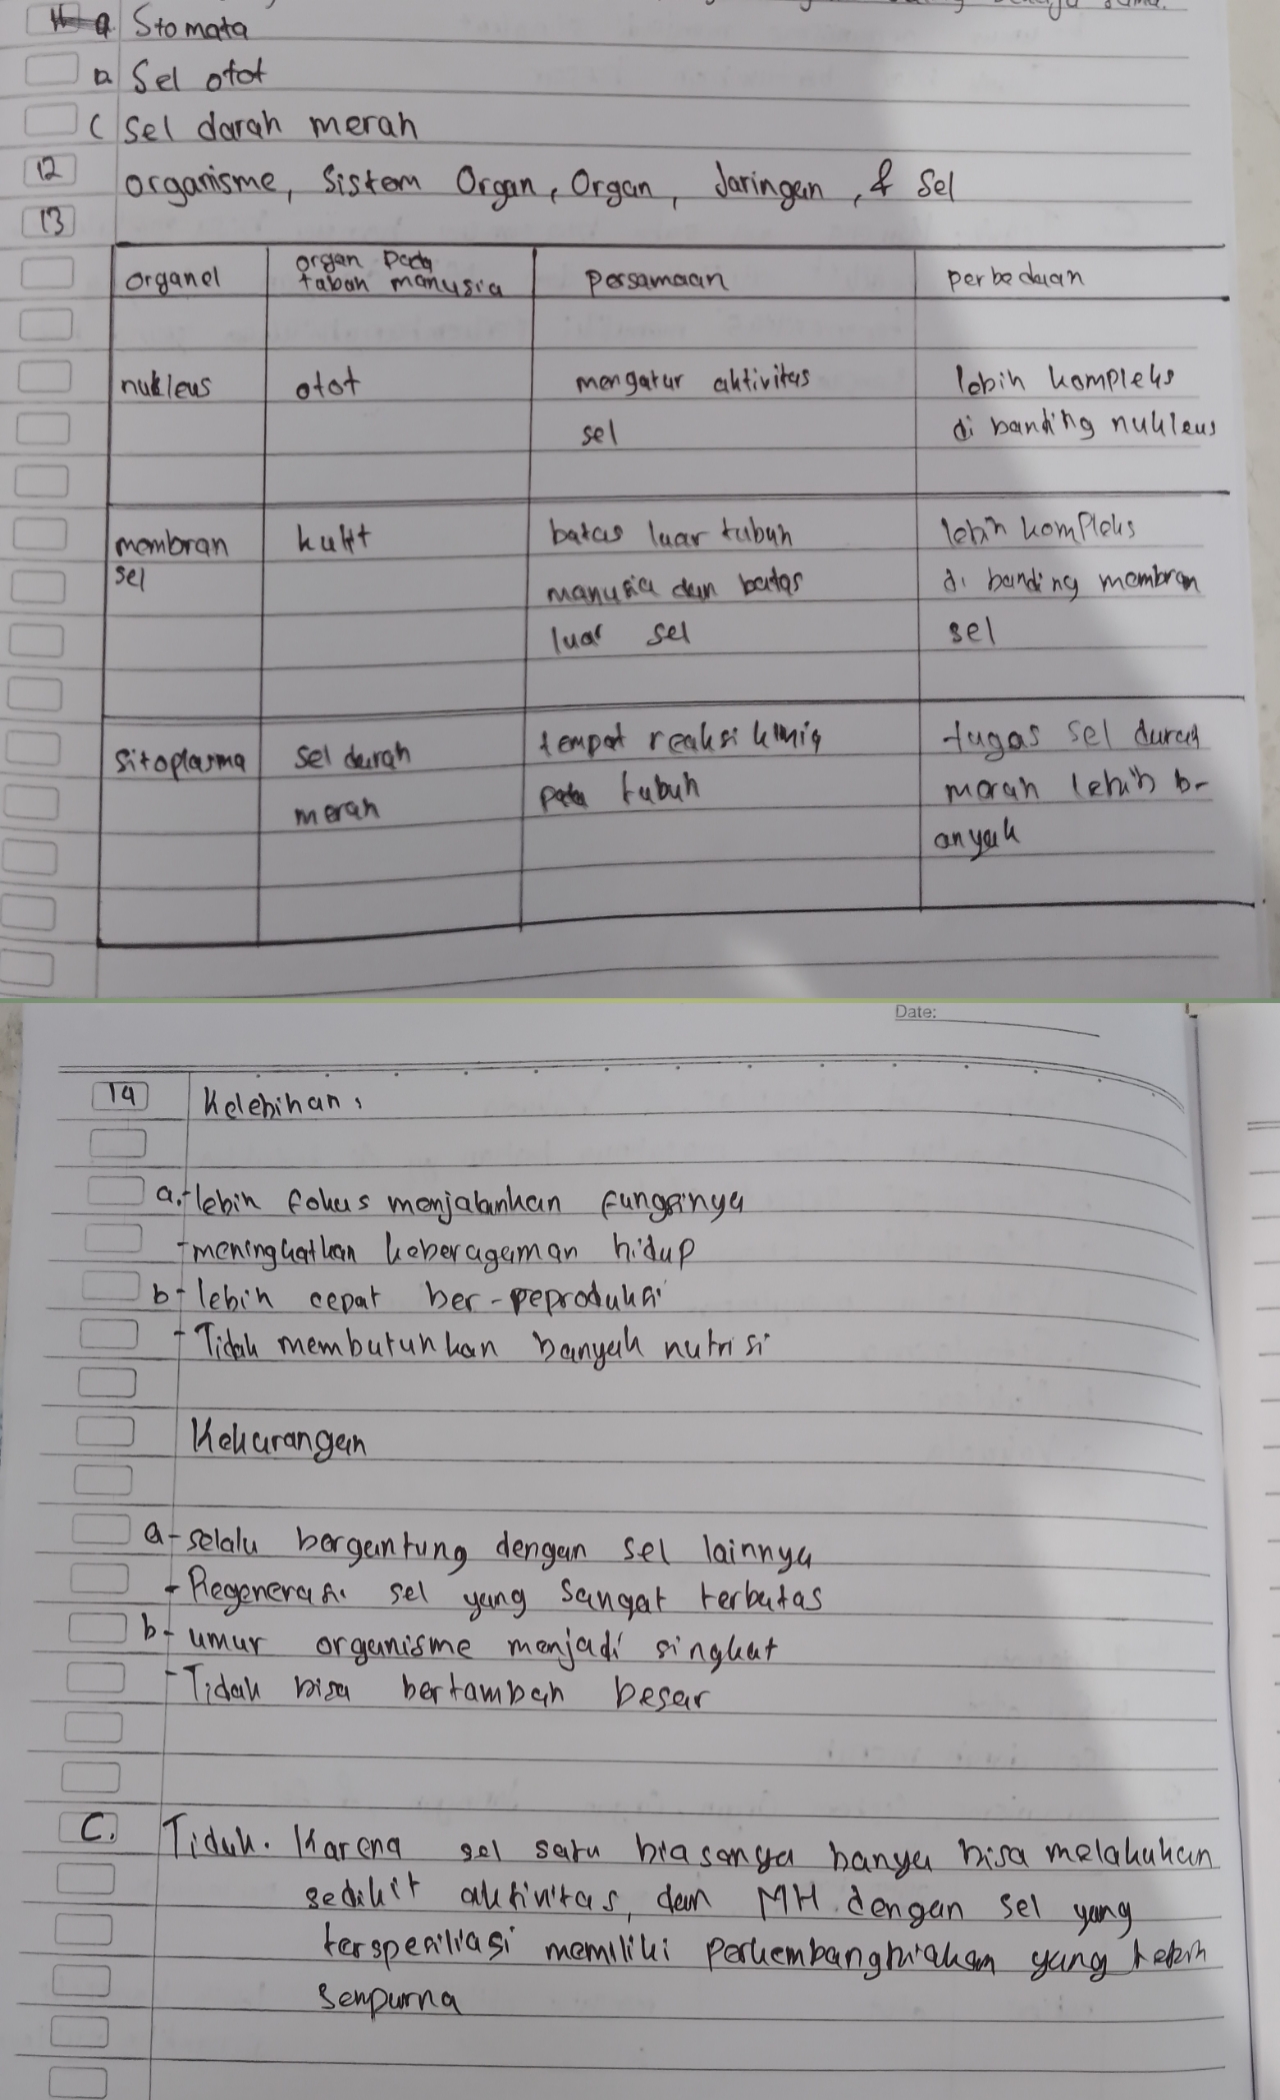 a Stomata
a Sel otot
c Sel darah merah
12 organisme, Sistem Organ, Organ, Jaringan, & Sel
13
organel organ pada tubuh manusia persamaan perbedaan
nukleus otot mengatur aktivitas lebih kompleks
sel di banding nukleus
membran kulit batas luar tubuh lebih kompleks
sel manusia dan batas di banding membran
luar sel sel
Sitoplasma sel darah tempat reaksi kimia tugas sel darah
merah pada tubuh merah lebih b-
anyak
Date:
14 Kelebihan:
a.- lebih fokus menjalankan fungsinya
- meningkatkan keberagaman hidup
b - lebih cepat ber-peproduksi
- Tidak membutuhkan banyak nutrisi
Kekurangan
a - selalu bergantung dengan sel lainnya
- Regenerasi sel yang sangat terbatas
b - umur organisme menjadi singkat
- Tidak bisa bertambah besar
C. Tidak. Karena sel satu biasanya hanya bisa melakukan
sedikit aktivitas, dan MH dengan sel yang
terspesiliasi memiliki yang lebih
senpurna